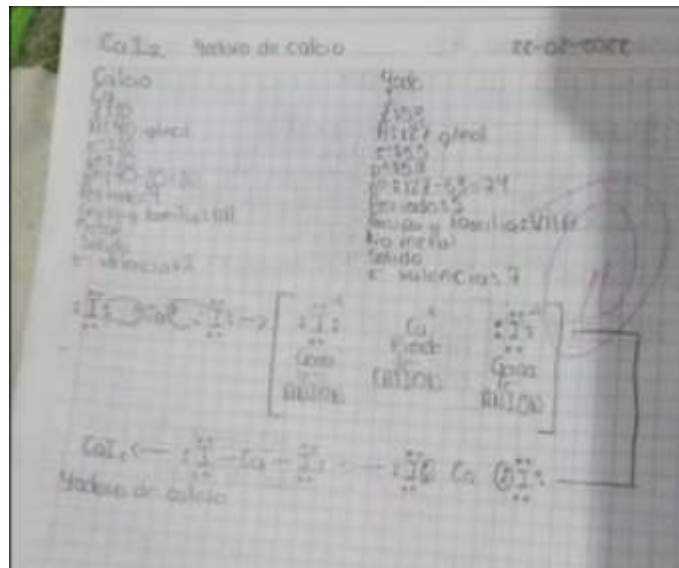 CaI₂ Yoduro de calcio 22-02-2022
Calcio
Ca
Z=20
A=40 g/mol
e⁻=20
p⁺=20
n°=40-20=20
Periodo=4
Grupo y familia=IIA
Metal
Solido
e⁻ valencia=2
Yodo
I
Z=53
A=127 g/mol
e⁻=53
p⁺=53
n°=127-53=74
Periodo=5
Grupo y familia=VIIA
No metal
Solido
e⁻ valencia=7
I Ca I → I Ca I
Gana Pierde Gana
ANION CATION ANION
CaI₂ ← I - Ca - I ← I Ca I
Yoduro de calcio